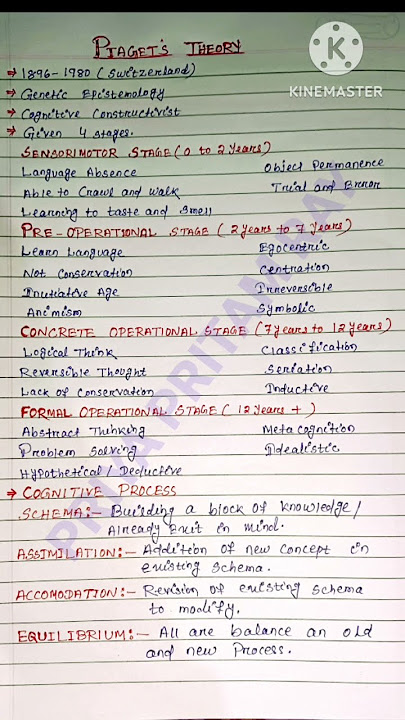 PIAGET'S THEORY
KINEMASTER
→ 1896-1980 (Switzerland)
→ Genetic Epistemology
→ Cognitive Constructivist
→ Given 4 stages.
SENSORIMOTOR STAGE (0 to 2 years)
Language Absence Object Permanence
Able to Crawl and walk Trial and Error
Learning to taste and smell
PRE-OPERATIONAL STAGE (2 years to 7 years)
Learn Language Egocentric
Not Conservation Centration
Intuitive Age Irreversible
Animism Symbolic
CONCRETE OPERATIONAL STAGE (7 years to 12 years)
Logical Think Classification
Reversible Thought Seriation
Lack of Conservation Inductive
FORMAL OPERATIONAL STAGE (12 years +)
Abstract Thinking Meta cognition
Problem Solving Idealistic
Hypothetical / Deductive
→ COGNITIVE PROCESS
SCHEMA:- Building a block of knowledge/
Already Exit in mind.
ASSIMILATION:- Addition of new concept in
existing schema.
ACCOMODATION:- Revision of existing schema
to modify.
EQUILIBRIUM:- All are balance an old
and new Process.
PRIYA PRITAM RAY